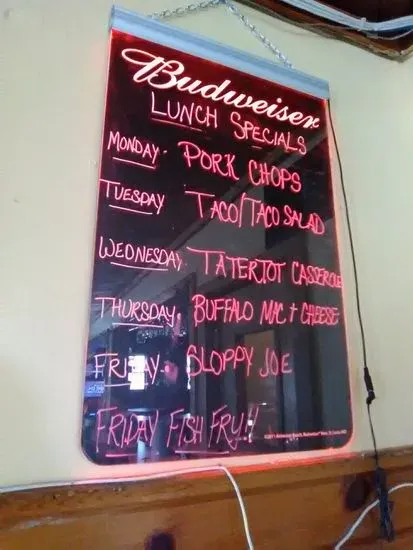 Budweiser
LUNCH SPECIALS
MONDAY. PORK CHOPS
TUESDAY TACO/TACO SALAD
WEDNESDAY. TATERTOT CASSEROLE
THURSDAY. BUFFALO MAC + CHEESE
FRIDAY. SLOPPY JOE
FRIDAY FISH FRY!!